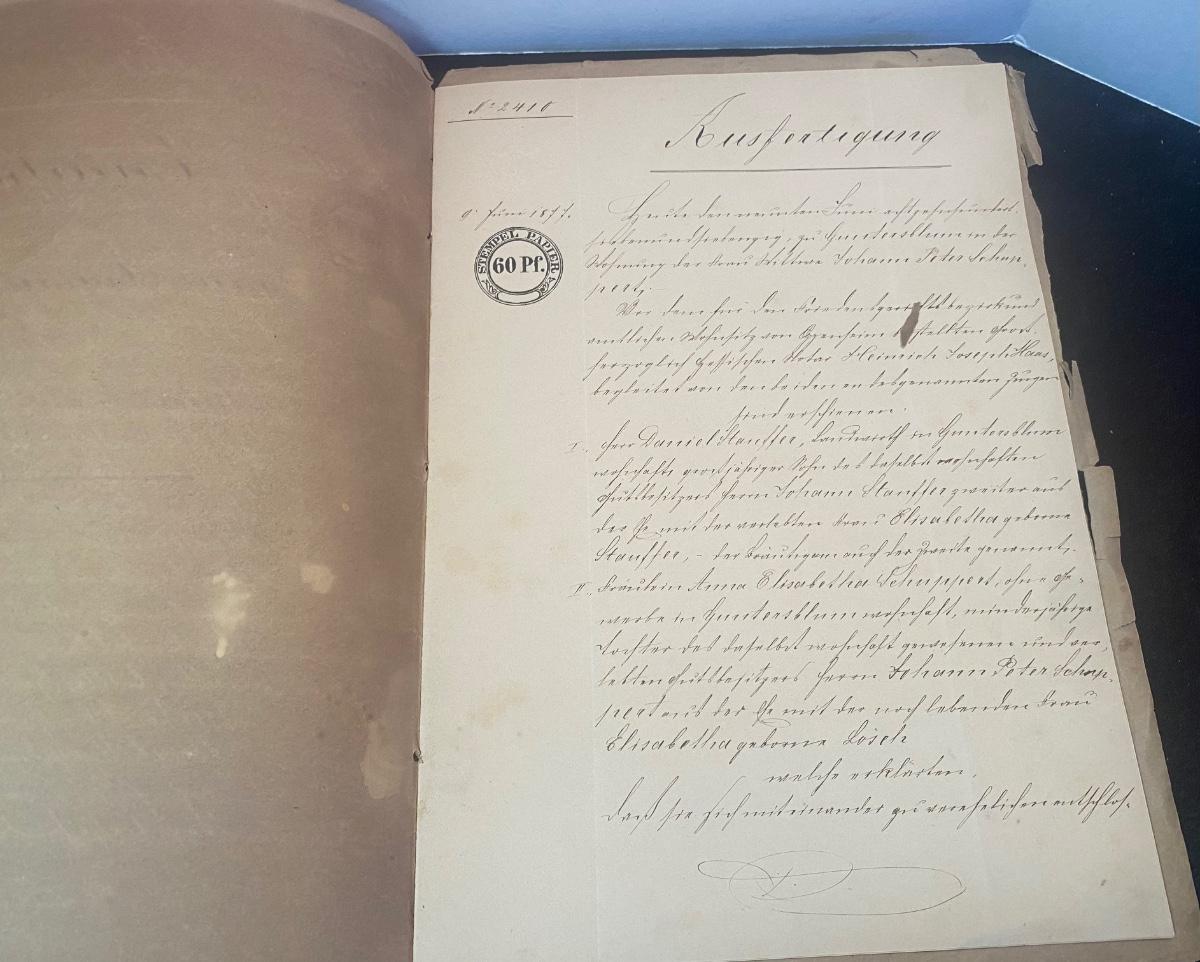 No 2410
Ausfertigung
9. Juni 1877.
STEMPEL PAPIER
60 Pf.
Heute den neunten Juni achtzehnhundert
siebenundsiebenzig, zu Guntersblum in der
Wohnung der Frau Wittwe Johann Peter Schup-
pert,
Vor dem für den Friedensgerichtsbezirk und
amtlichen Wohnsitz von Oppenheim bestellten Groß-
herzoglich Hessischen Notar Heinrich Joseph Haas,
begleitet von den beiden endesgenannten Zeugen
sind erschienen.
I., Herr Daniel Stauffer, Landwirth in Guntersblum
wohnhaft, großjähriger Sohn des daselbst wohnhaften
Gutsbesitzers Herrn Johann Stauffer zweiter aus
der Ehe mit der verlebten Frau Elisabetha geborne
Stauffer, - der Bräutigam auch der Zweite genannt,
II., Fräulein Anna Elisabetha Schuppert, ohne Ge-
werbe in Guntersblum wohnhaft, minderjährige
Tochter des daselbst wohnhaft gewesenen und ver-
lebten Gutsbesitzers Herrn Johann Peter Schup-
pert aus der Ehe mit der noch lebenden Frau
Elisabetha geborne Lösch
welche erklärten,
Daß sie sich miteinander zu verehelichen entschlos-